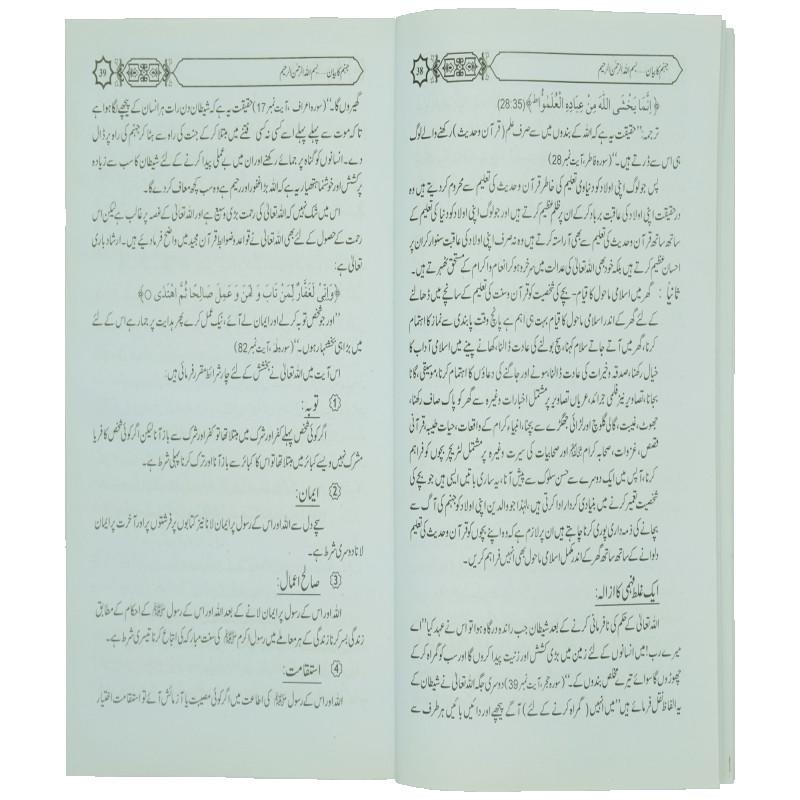 38 جہنم کا بیان.....بسم اللہ الرحمن الرحیم
﴿إِنَّمَا يَخْشَى اللَّهَ مِنْ عِبَادِهِ الْعُلَمٰؤُا ط﴾(28:35)
ترجمہ:''حقیقت یہ ہے کہ اللہ کے بندوں میں سے صرف علم (قرآن وحدیث) رکھنے والے لوگ
ہی اس سے ڈرتے ہیں۔''(سورہ فاطر، آیت نمبر 28)
پس جو لوگ اپنی اولاد کو دنیاوی تعلیم کی خاطر قرآن وحدیث کی تعلیم سے محروم کر دیتے ہیں وہ
درحقیقت اپنی اولاد کی عاقبت برباد کر کے ان پر ظلم عظیم کرتے ہیں اور جو لوگ اپنی اولاد کو دنیا کی تعلیم کے
ساتھ ساتھ قرآن وحدیث کی تعلیم سے بھی آراستہ کرتے ہیں وہ نہ صرف اپنی اولاد کی عاقبت سنوار کر ان پر
احسان عظیم کرتے ہیں بلکہ خود بھی اللہ تعالیٰ کی عدالت میں سرخرو ہو کر انعام واکرام کے مستحق ٹھہرتے ہیں۔
ثانیاً : گھر میں اسلامی ماحول کا قیام۔ بچے کی شخصیت کو قرآن وسنت کی تعلیم کے سانچے میں ڈھالنے
کے لئے گھر کے اندر اسلامی ماحول کا قیام بہت ہی اہم ہے پانچ وقت پابندی سے نماز کا اہتمام
کرنا، گھر میں آتے جاتے سلام کہنا، سچ بولنے کی عادت ڈالنا، کھانے پینے میں اسلامی آداب کا
خیال رکھنا، صدقہ وخیرات کی عادت ڈالنا، سونے اور جاگنے کی دعاؤں کا اہتمام کرنا، موسیقی، گانا
بجانا، تصاویر نیز فلمی جرائد، عریاں تصاویر پر مشتمل اخبارات وغیرہ سے گھر کو پاک صاف رکھنا،
جھوٹ، غیبت، گالی گلوچ اور لڑائی جھگڑے سے بچنا، انبیاء کرام کے واقعات، حیات طیبہ، قرآنی
قصص، غزوات، صحابہ کرام ﷢ اور صحابیات کی سیرت وغیرہ پر مشتمل لٹریچر بچوں کو فراہم
کرنا، آپس میں ایک دوسرے سے حسن سلوک سے پیش آنا، یہ ساری باتیں ایسی ہیں جو بچے کی
شخصیت تعمیر کرنے میں بنیادی کردار ادا کرتی ہیں، لہٰذا جو والدین اپنی اولاد کو جہنم کی آگ سے
بچانے کی ذمہ داری پوری کرنا چاہتے ہیں ان پر لازم ہے کہ وہ اپنے بچوں کو قرآن وحدیث کی تعلیم
دلوانے کے ساتھ ساتھ گھر کے اندر مکمل اسلامی ماحول بھی انہیں فراہم کریں۔
ایک غلط فہمی کا ازالہ:
اللہ تعالیٰ کے حکم کی نافرمانی کرنے کے بعد شیطان جب راندہ درگاہ ہوا تو اس نے عہد کیا ''اے
میرے رب! میں انسانوں کے لئے زمین میں بڑی کشش اور زینت پیدا کروں گا اور سب کو گمراہ کر کے
چھوڑوں گا سوائے تیرے مخلص بندوں کے۔''(سورہ حجر، آیت نمبر 39) دوسری جگہ اللہ تعالیٰ نے شیطان کے
یہ الفاظ نقل فرمائے ہیں ''میں انہیں (گمراہ کرنے کے لئے) آگے پیچھے اور دائیں بائیں ہر طرف سے
39 جہنم کا بیان.....بسم اللہ الرحمن الرحیم
گھیروں گا۔''(سورہ اعراف، آیت نمبر 17) حقیقت یہ ہے کہ شیطان دن رات ہر انسان کے پیچھے لگا ہوا ہے
تاکہ موت سے پہلے پہلے اسے کسی نہ کسی فتنے میں مبتلا کر کے جنت کی راہ سے ہٹا کر جہنم کی راہ پر ڈال
دے۔ انسانوں کو گناہ پر جمائے رکھنے اور ان میں بے عملی پیدا کرنے کے لئے شیطان کا سب سے زیادہ
پرکشش اور خوشنما ہتھیار یہ ہے کہ اللہ بڑا غفور اور رحیم ہے وہ سب کچھ معاف کر دے گا۔
اس میں شک نہیں کہ اللہ تعالیٰ کی رحمت بڑی وسیع ہے اور اللہ تعالیٰ کے غصہ پر غالب ہے لیکن اس
رحمت کے حصول کے لئے بھی اللہ تعالیٰ نے قواعد وضوابط قرآن مجید میں واضح فرما دیئے ہیں۔ ارشاد باری
تعالیٰ ہے:
﴿وَإِنِّي لَغَفَّارٌ لِّمَنْ تَابَ وَ اٰمَنَ وَ عَمِلَ صَالِحًا ثُمَّ اهْتَدٰى ○﴾
''اور جو شخص توبہ کر لے اور ایمان لے آئے، نیک عمل کرے پھر ہدایت پر جما رہے اس کے لئے
میں بڑا ہی بخشنہار ہوں۔''(سورہ طہ، آیت نمبر 82)
اس آیت میں اللہ تعالیٰ نے بخشش کے لئے چار شرائط مقرر فرمائی ہیں:
① توبہ:
اگر کوئی شخص پہلے کفر اور شرک میں مبتلا تھا تو کفر اور شرک سے باز آنا لیکن اگر کوئی شخص کافر یا
مشرک نہیں ویسے کبائر میں مبتلا تھا تو اس کا کبائر سے باز آنا اور ترک کرنا پہلی شرط ہے۔
② ایمان:
سچے دل سے اللہ اور اس کے رسول پر ایمان لانا نیز کتابوں پر فرشتوں پر اور آخرت پر ایمان
لانا دوسری شرط ہے۔
③ صالح اعمال:
اللہ اور اس کے رسول پر ایمان لانے کے بعد اللہ اور اس کے رسول ﷺ کے احکام کے مطابق
زندگی بسر کرنا زندگی کے ہر معاملے میں رسول اکرم ﷺ کی سنت مبارکہ کی اتباع کرنا تیسری شرط ہے۔
④ استقامت:
اللہ اور اس کے رسول ﷺ کی اطاعت میں اگر کوئی مصیبت یا آزمائش آئے تو استقامت اختیار